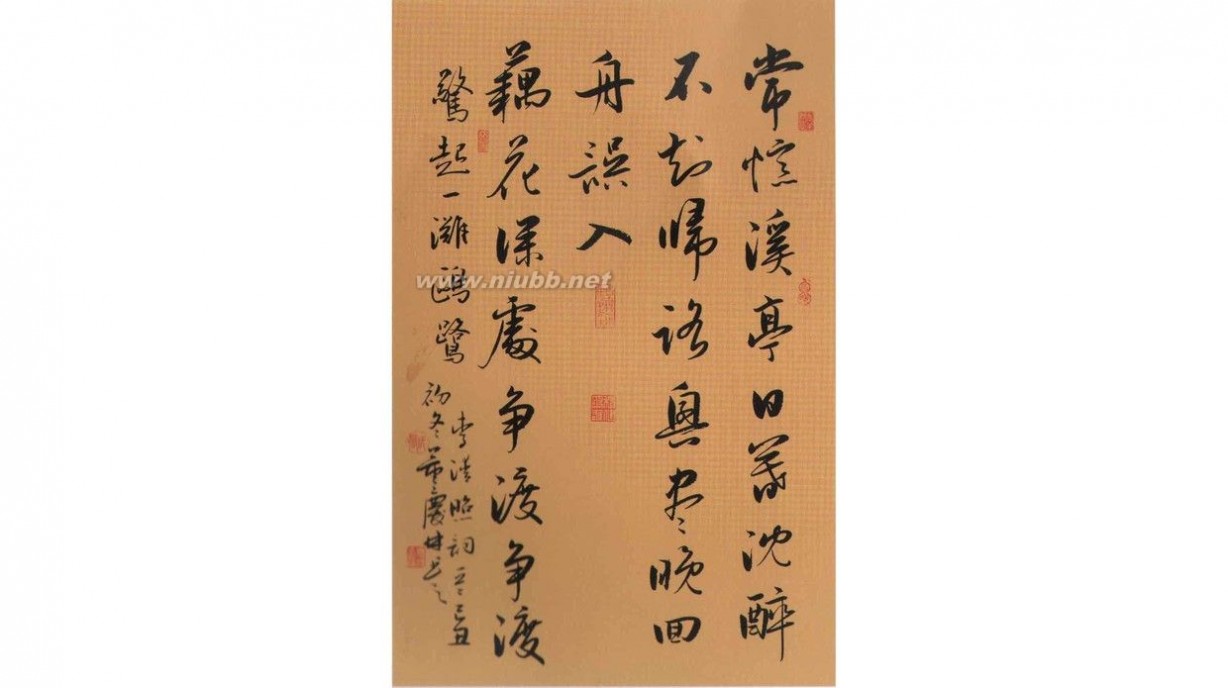 常憶溪亭日暮沈醉
不知歸路興尽晚回
舟誤入
藕花深處争渡争渡
驚起一灘鷗鷺
李清照詞己丑
初冬慶坤
www.niubb.net